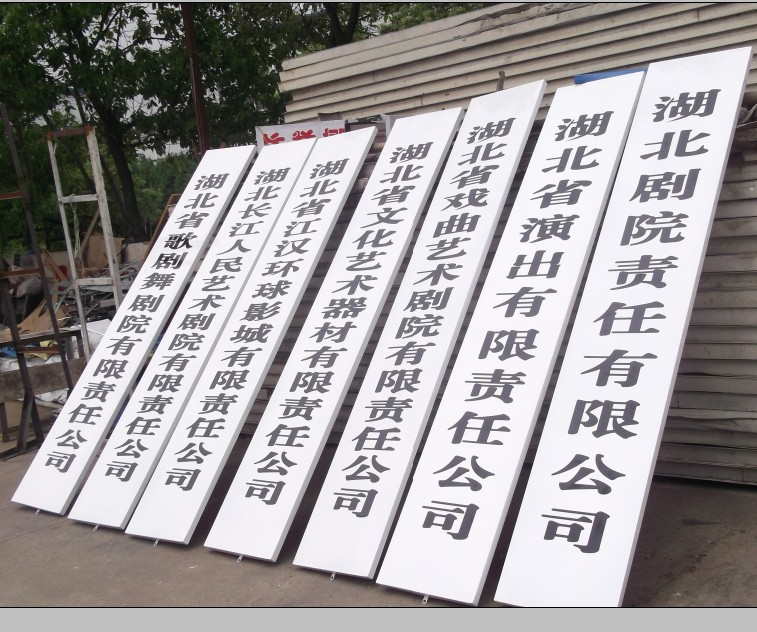 湖北省歌剧舞剧院有限责任公司
湖北长江人民艺术剧院有限责任公司
湖北省江汉环球影城有限责任公司
湖北省文化艺术器材有限责任公司
湖北省戏曲艺术剧院有限责任公司
湖北省演出有限责任公司
湖北剧院责任有限公司